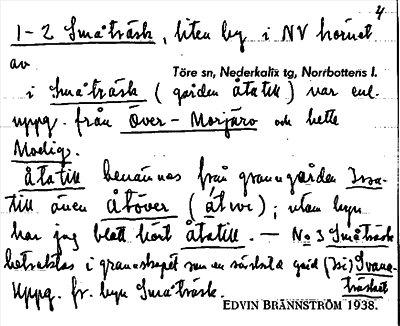 4
1-2 Småträsk, liten by i NV hörnet
av
Töre sn, Nederkalix tg, Norrbottens l.
i Småträsk (gården åtatill) var enl.
uppg. från Över-Morjärv och hette
Modig.
Åtatill benämnes från granngården Iva-
till även åtöver (åtve); utom byn
har jag blott hört åtatill. - No 3 Småträsk
betraktas i grannskapet som en särskild gård (751) Svana-
träsket
Uppg. fr. byn Småträsk.
EDVIN BRÄNNSTRÖM 1938.